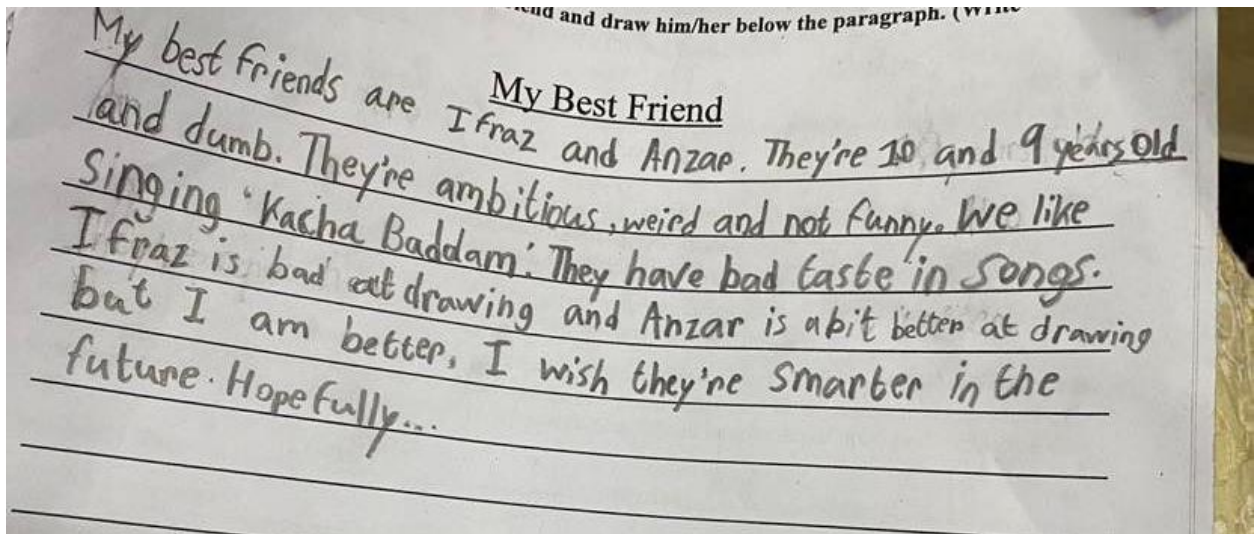 and draw him/her below the paragraph.
My Best Friend
My best friends are Ifraz and Anzar. They're 10 and 9 years old
and dumb. They're ambitious, weird and not funny. We like
Singing 'Kacha Baddam'. They have bad taste in songs.
Ifraz is bad at drawing and Anzar is abit better at drawing
but I am better. I wish they're smarter in the
future. Hopefully...